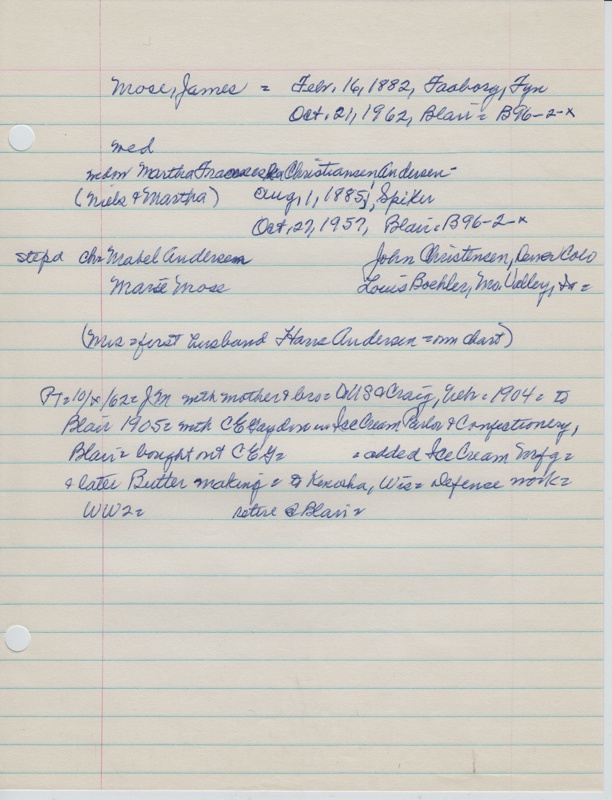 Mose, James = Febr. 16, 1882, Faaborg, Fyn
Oct. 21, 1962, Blair = B96-2-x
wed
wdm Martha Christiansen, Andersen-
(Niels & Martha) Aug, 1, 1885, Spiker
Oct. 27, 1957, Blair = B96-2-x
stepd ch = Mabel Andersen John Christensen, Denver Colo
Marie Mose Louis Boehler, Mo. Valley, Ia =
(Mrs = first husband Hans Andersen = own chart)
PT = 10/x/62 = JM with mother & bro = to US & Craig, Nebr. = 1904 = to
Blair 1905 = with CE Gaydou in Ice Cream Parlor & Confectionery,
Blair = bought out CEG = = added Ice Cream Mfg =
& later Butter making = to Kenosha, Wis = Defense work =
WW2 = retire @ Blair =